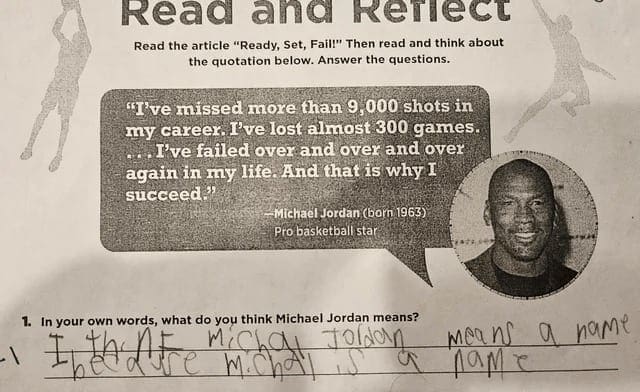 Read and Reflect
Read the article “Ready, Set, Fail!” Then read and think about
the quotation below. Answer the questions.
“I’ve missed more than 9,000 shots in
my career. I’ve lost almost 300 games.
. . . I’ve failed over and over and over
again in my life. And that is why I
succeed.”
—Michael Jordan (born 1963)
Pro basketball star
1. In your own words, what do you think Michael Jordan means?
-1 I think Michal Joldan means a name
because michal is a name